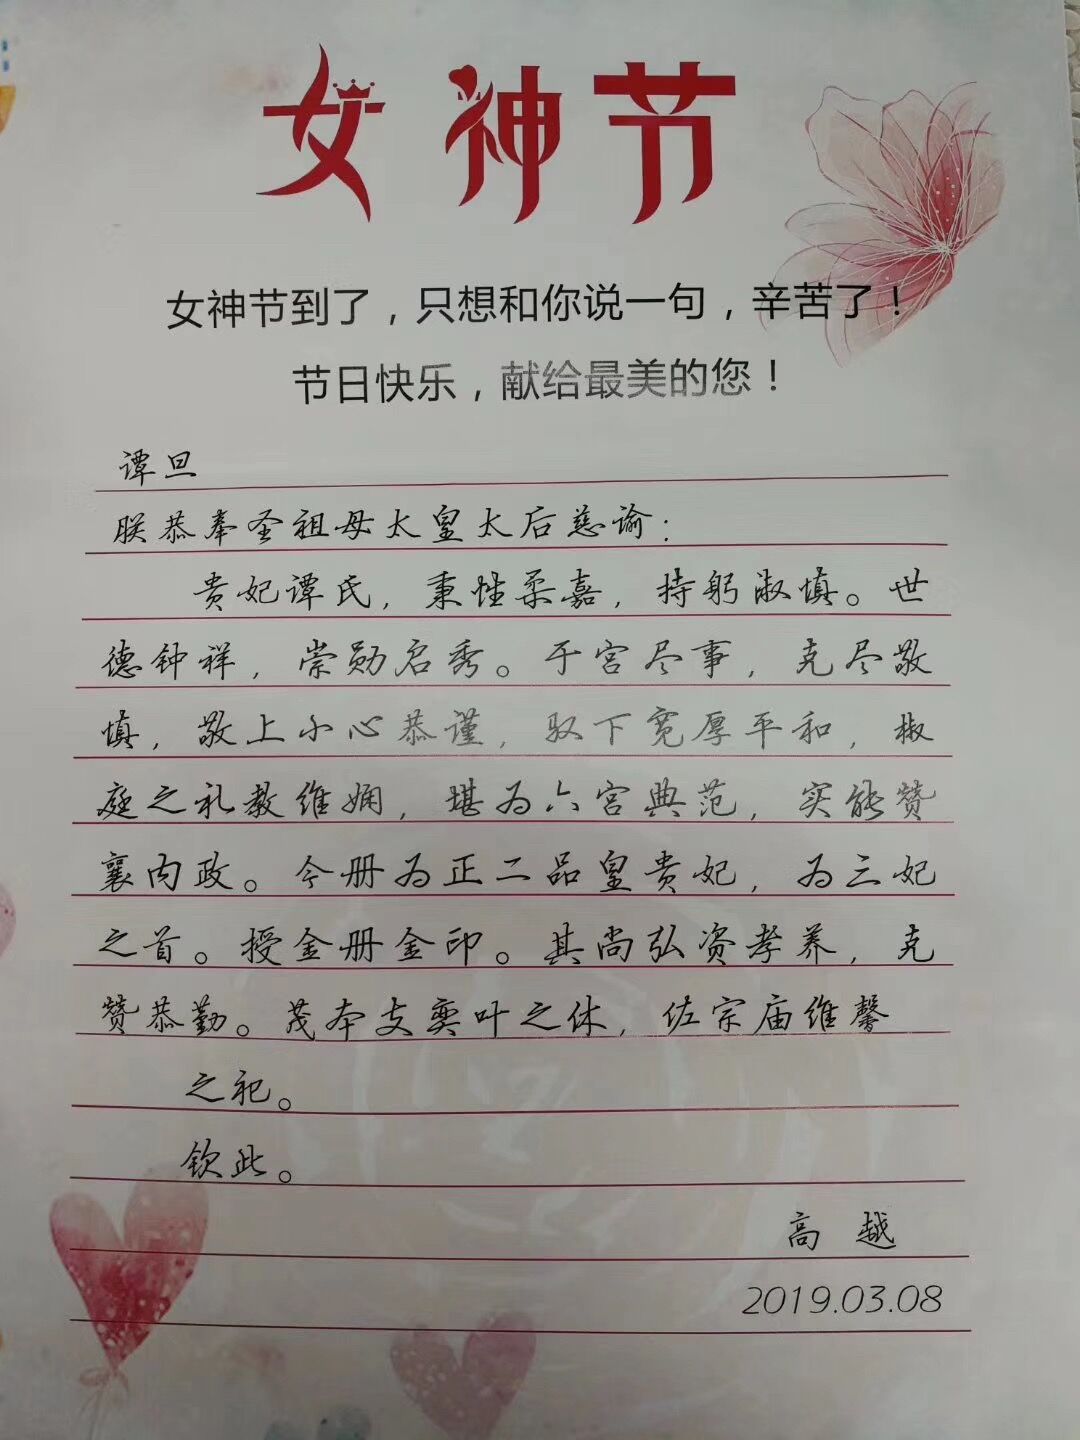 女神节
女神节到了，只想和你说一句，辛苦了！
节日快乐，献给最美的您！
谭旦
朕恭奉圣祖母太皇太后慈谕：
贵妃谭氏，秉性柔嘉，持躬淑慎。世
德钟祥，崇勋启秀。于宫尽事，克尽敬
慎，敬上小心恭谨，驭下宽厚平和，椒
庭之礼教维娴，堪为六宫典范，实能赞
襄内政。今册为正二品皇贵妃，为三妃
之首。授金册金印。其尚弘资孝养，克
赞恭勤。茂本支奕叶之休，佐宗庙维馨
之祀。
钦此。
高越
2019.03.08